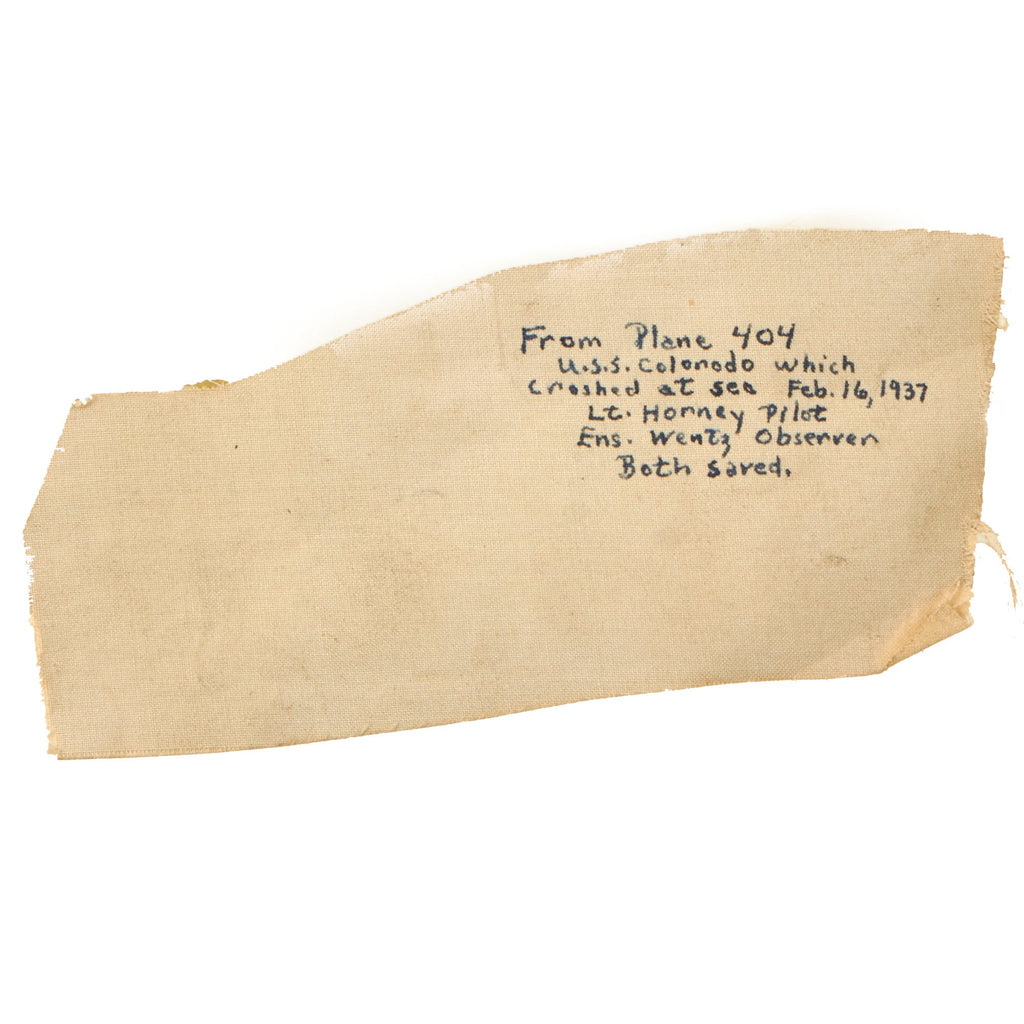 From Plane 404
U.S.S. Colorado which
Crashed at sea Feb. 16, 1937
Lt. Horney Pilot
Ens. Wentz Observer
Both saved.